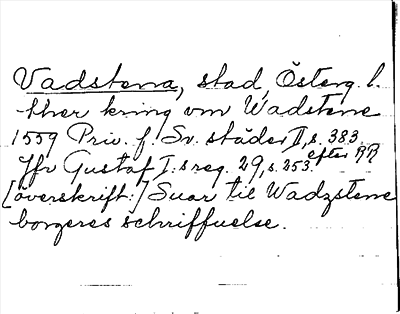 Vadstena, stad, Österg. l.
ther kring om Wadstene
1559 Priv. f. Sv. städer II, s. 383.
Jfr Gustaf I:s reg. 29, s. 253. efter RR
[överskrift:] Suar til Wadzstene
borgeres schriffuelse.